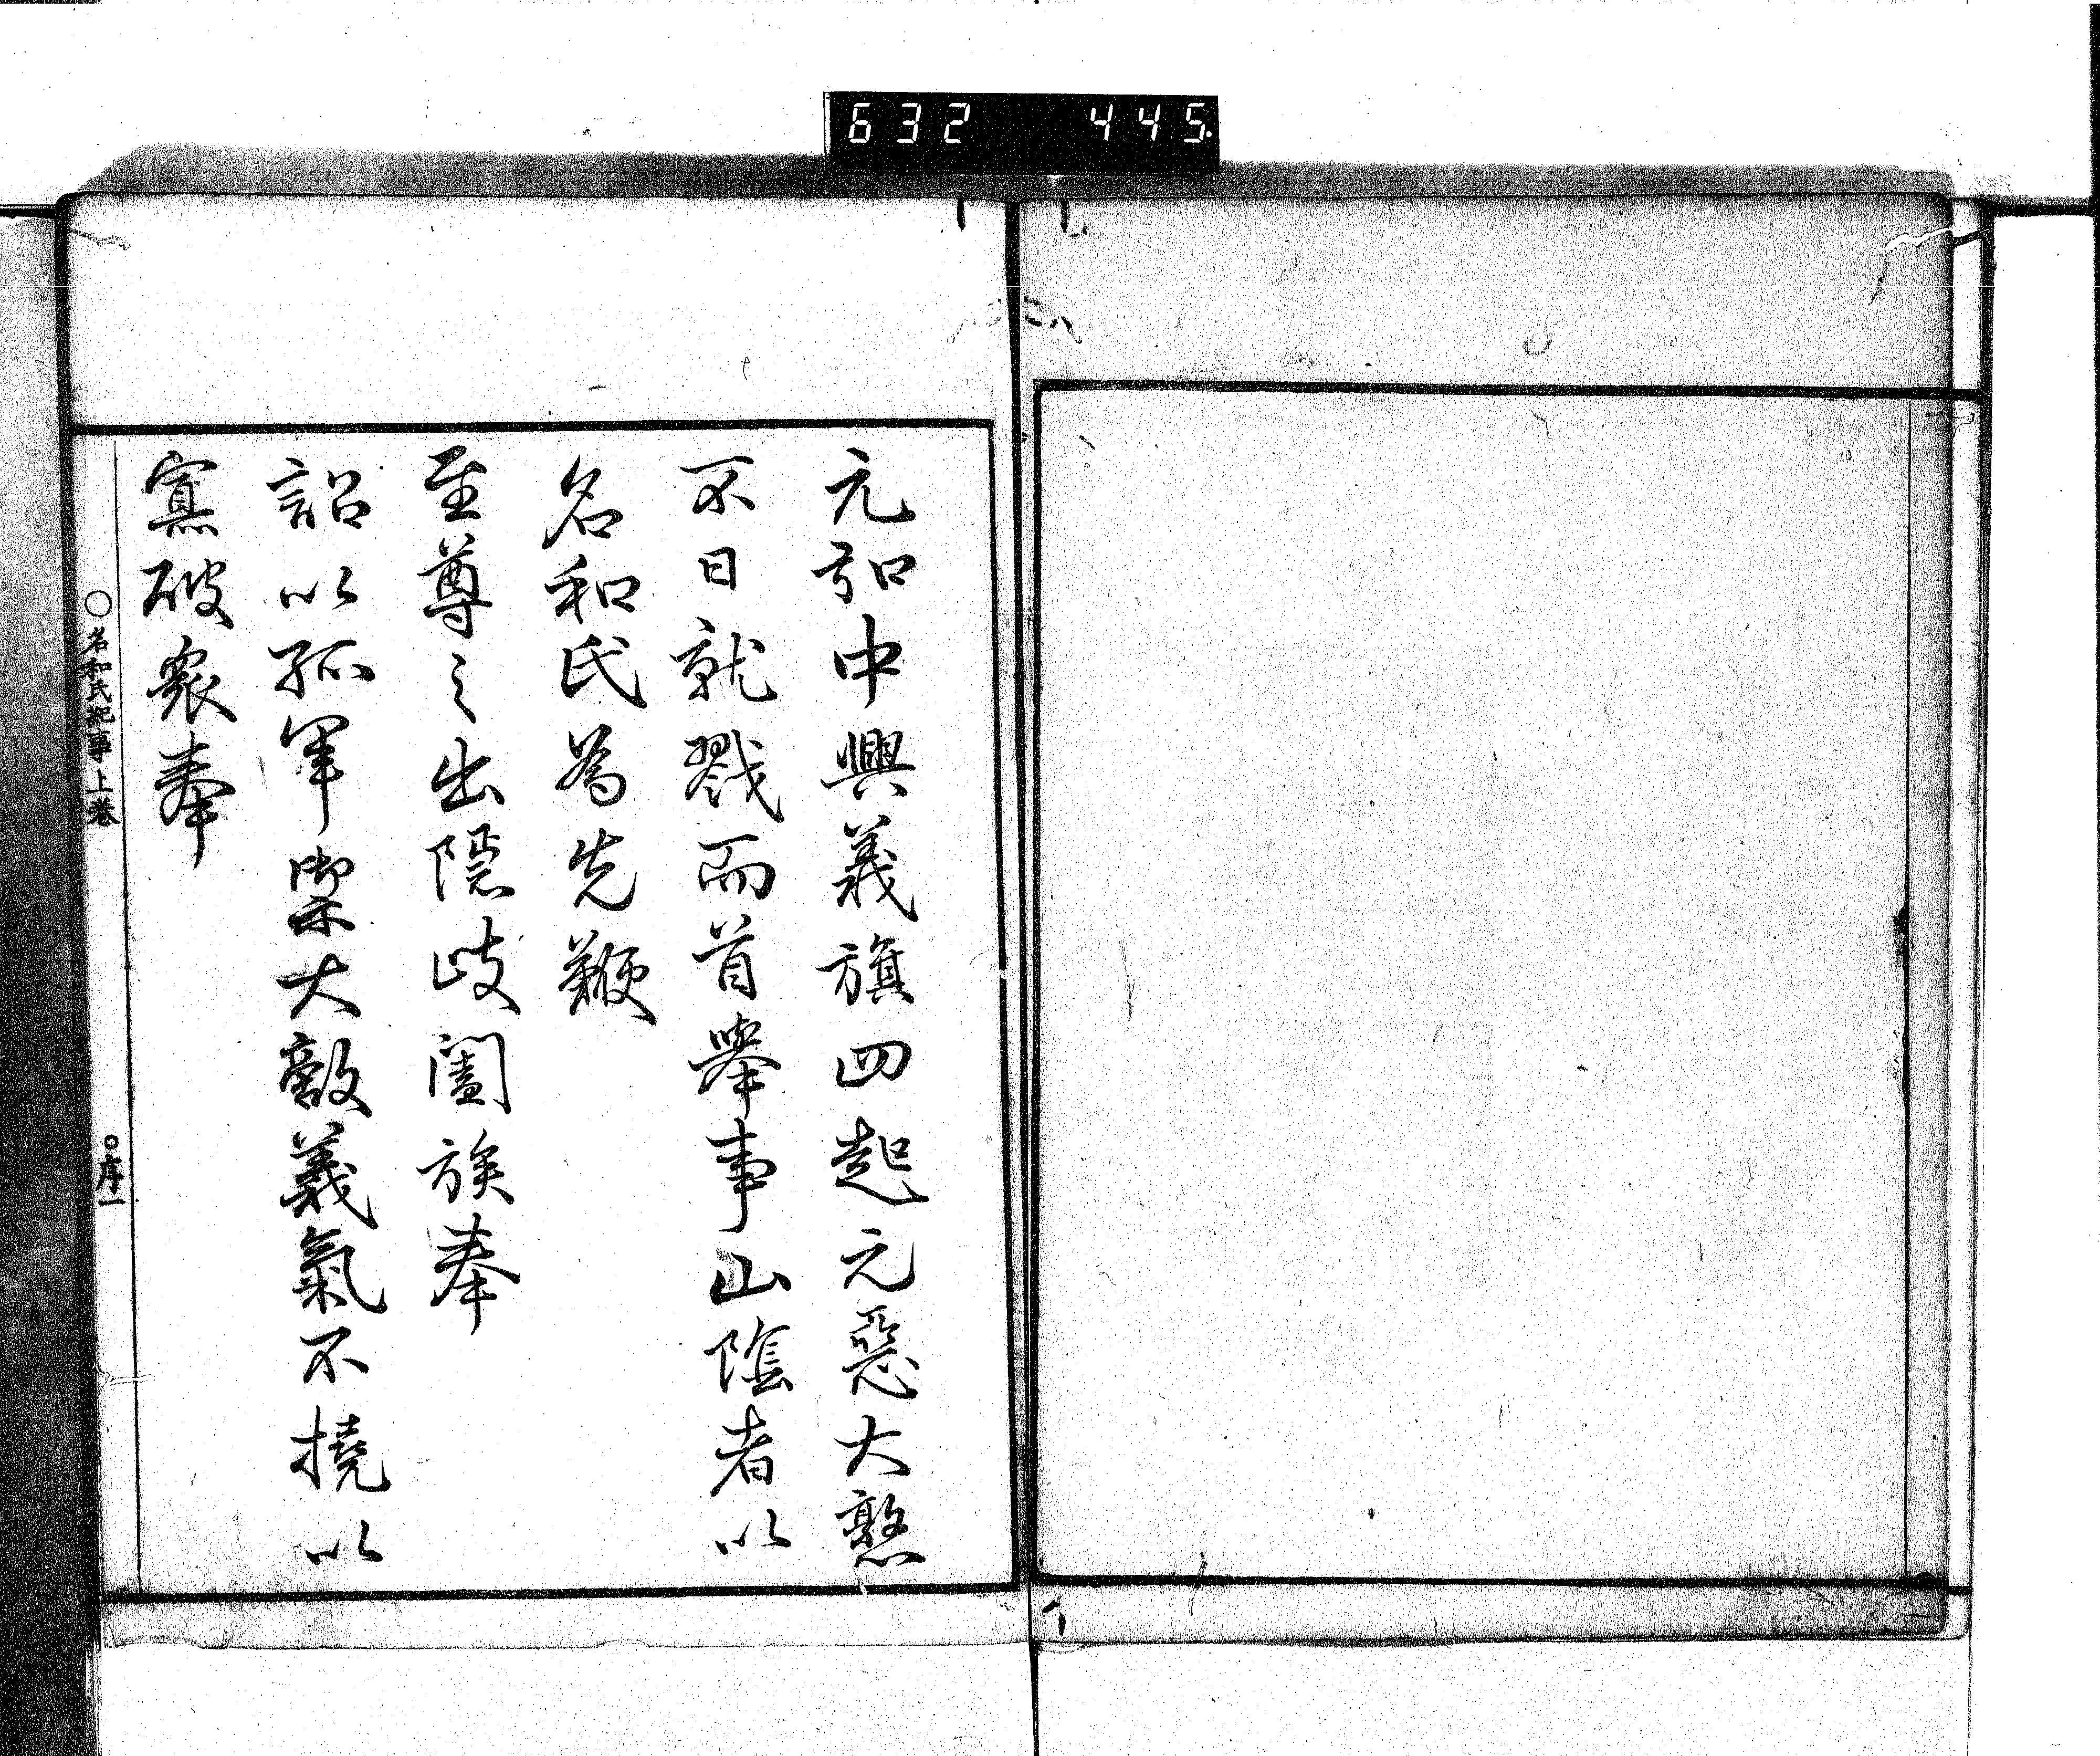 632 445
元弘中興義旗四起元惡大憝
不日就戮而首舉事山陰者以
名和氏為先鞭
至尊之出隠岐闔族奉
詔以孤軍禦大敵義氣不撓以
寡破衆奉
○名和氏紀事上巻 ○序一